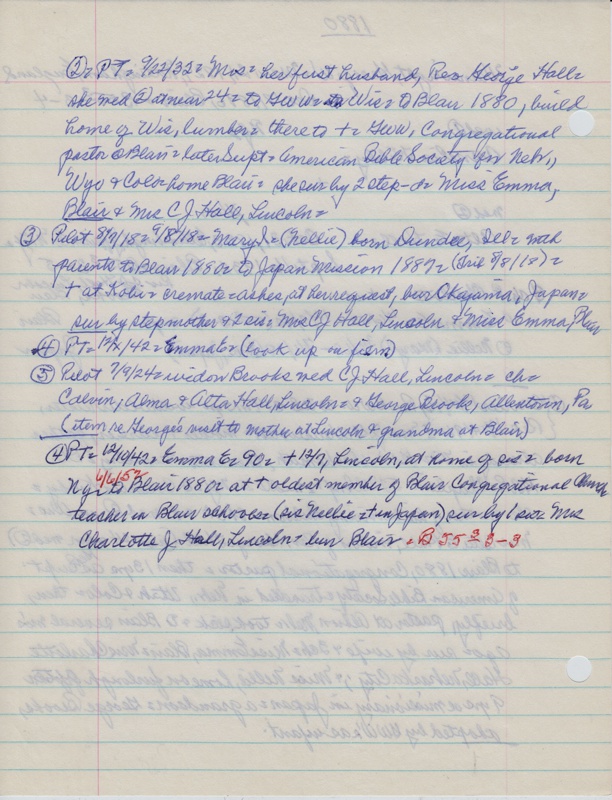 1880
② = PT = 9/22/32 = Mos = her first husband, Rev. George Hall =
she med ② at near 24 = to GWW = Wis = to Blair 1880, build
home of Wis, lumber = there to + = GWW, Congregational
pastor @ Blair = later Supt = American Bible Society for Nebr,
Wyo & Colo = home Blair = she sur by 2 step-d = Miss Emma,
Blair & Mrs C.J. Hall, Lincoln =
③ Pilot 8/9/18 = 9/8/18 = Mary J = (Nellie) born Dundee, Ill = with
parents to Blair 1880 = to Japan Mission 1887 = (Trib 8/8/18) =
+ at Kobe = cremate = ashes, at her request, bur Okayama, Japan =
sur by stepmother & 2 sis = Mrs CJ Hall, Lincoln & Miss Emma, Blair
④ PT = 12/ /42 = Emma E = (look up in fism)
⑤ Pilot 7/9/24 = widow Brooks med CJ Hall, Lincoln = ch =
Calvin, Alma & Alta Hall, Lincoln = & George Brooks, Allentown, Pa
(item re George's visit to mother at Lincoln & grandma at Blair)
④ PT = 12/10/42 = Emma E = 90 = + 12/7, Lincoln, at home of sis = born
6/6/52
N.Y = to Blair 1880 = at + oldest member of Blair Congregational Church
teacher in Blair schools = (sis Nellie = + in Japan) sur by 1 sis = Mrs
Charlotte J Hall, Lincoln = bur Blair = B 55 = 3-3